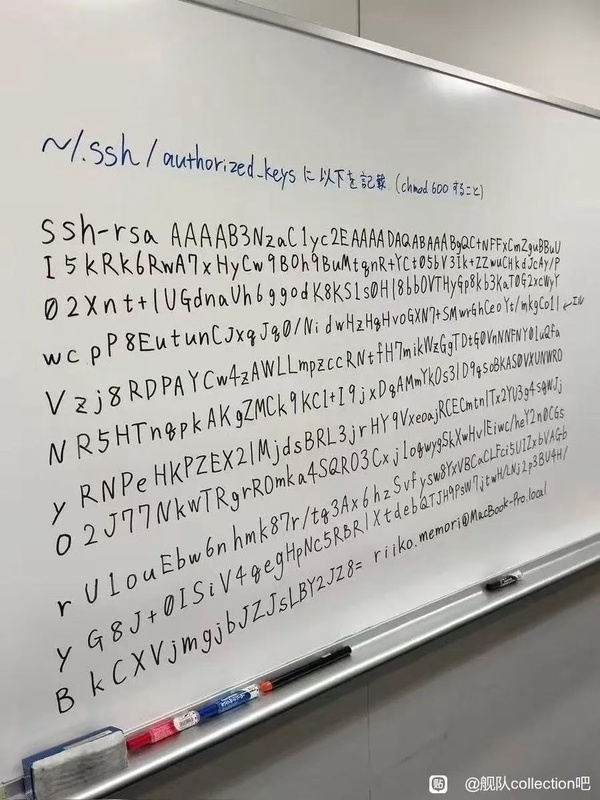 ~/.ssh/authorized_keys に以下を記載 (chmod 600 すること)
ssh-rsa AAAAB3NzaC1yc2EAAAADAQABAAABgQC+NFFxCmZguBBuU
I5kRk6RwA7xHyCw9BOh9BuMtqnR+YCt05bV3Ik+ZZwuCHkdJcAy/P
02Xnt+lUGdnaUh6ggodK8KS1s0H18bb0VTHyGp8kb3KaT0G2xcWyY
wcpP8EutunCJxqJq0/NidwHzHqHvoGXN7+SMwrGhCeoYt/mkgCo1l ←エル
Vzj8RDPAYCw4zAWLLmpzccRNtfH7mikWzGgTDtG0VnNNFNY01uQfa
NR5HTnqpkAKgZMCk9KC1+I9jxDqAMmYkOs31D9qsoBKAS0VXUNWRO
yRNPeHKPZEX21MjdsBRL3jrHY9VxeoajRCECmtnlTx2YU3g4sqwJj
O2J77NkwTRgrROmka4SQRO3Cxj1oqwygSkXwHvlEiwc/heY2n0CGs
rU1ouEbw6nhmk87r/tq3Ax6hzSvfysw8YxVBCaCLFci5UIZxbVAGb
yG8J+0ISiV4qegHpNc5RBRlXtdebQTJH9PsW7jtwH/LNj2p3BU4H/
BkCXVjmgjbJZJsLBY2JZ8= riiko.memori@MacBook-Pro.local
@舰队collection吧